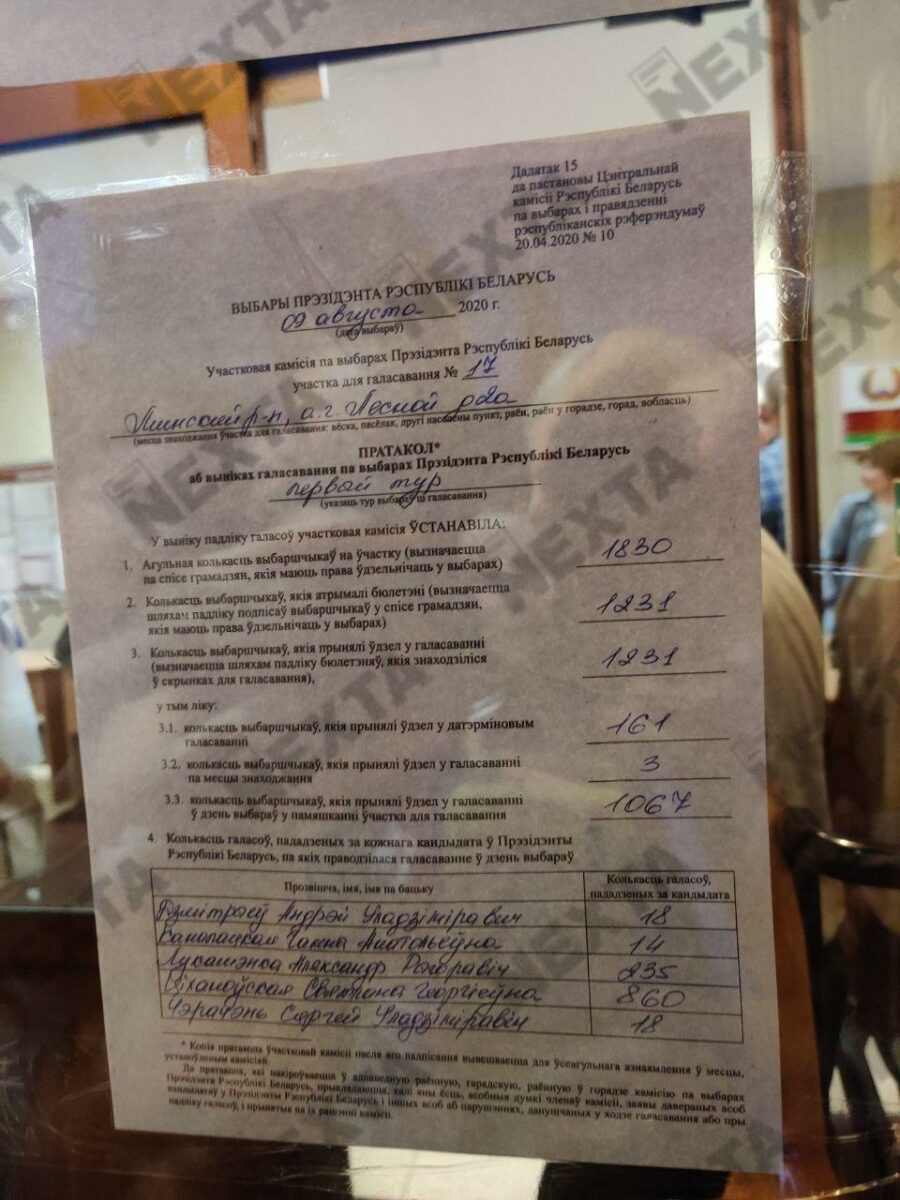 Дадатак 15
да пастановы Цэнтральнай
камісіі Рэспублікі Беларусь
па выбарах і правядзенні
рэспубліканскіх рэферэндумаў
20.04.2020 № 10
ВЫБАРЫ ПРЭЗІДЭНТА РЭСПУБЛІКІ БЕЛАРУСЬ
09 августа 2020 г.
(дата выбараў)
Участковая камісія па выбарах Прэзідэнта Рэспублікі Беларусь
участка для галасавання № 17
р-н, а.г. Лесной
(месца знаходжання ўчастка для галасавання: вёска, пасёлак, другі населены пункт, раён, раён у горадзе, горад, вобласць)
ПРАТАКОЛ*
аб выніках галасавання па выбарах Прэзідэнта Рэспублікі Беларусь
первый тур
(указаць тур выбараў ці галасавання)
У выніку падліку галасоў участковая камісія ЎСТАНАВІЛА:
1. Агульная колькасць выбаршчыкаў на ўчастку (вызначаецца
па спісе грамадзян, якія маюць права ўдзельнічаць у выбарах) 1830
2. Колькасць выбаршчыкаў, якія атрымалі бюлетэні (вызначаецца
шляхам падліку подпісаў выбаршчыкаў у спісе грамадзян,
якія маюць права ўдзельнічаць у выбарах) 1231
3. Колькасць выбаршчыкаў, якія прынялі ўдзел у галасаванні
(вызначаецца шляхам падліку бюлетэняў, якія знаходзіліся
ў скрынках для галасавання), 1231
у тым ліку:
3.1. колькасць выбаршчыкаў, якія прынялі ўдзел у датэрміновым
галасаванні 161
3.2. колькасць выбаршчыкаў, якія прынялі ўдзел у галасаванні
па месцы знаходжання 3
3.3. колькасць выбаршчыкаў, якія прынялі ўдзел у галасаванні
ў дзень выбараў у памяшканні ўчастка для галасавання 1067
4. Колькасць галасоў, пададзеных за кожнага кандыдата ў Прэзідэнты
Рэспублікі Беларусь, па якіх праводзілася галасаванне ў дзень выбараў
Прозвішча, імя, імя па бацьку Колькасць галасоў,
пададзеных за кандыдата
Дзмітрыеў Андрэй Уладзіміравіч 18
Канапацкая Ганна Анатольеўна 14
Лукашэнка Аляксандр Рыгоравіч 235
Ціханоўская Святлана Георгіеўна 860
Чэрачэнь Сяргей Уладзіміравіч 18
* Копія пратакола ўчастковай камісіі пасля яго падпісання вывешваецца для ўсеагульнага азнаямлення ў месцы,
устаноўленым камісіяй.
Да пратакола, які накіроўваецца ў адпаведную раённую, гарадскую, раённую ў горадзе камісію па выбарах
Прэзідэнта Рэспублікі Беларусь, прыкладаюцца, калі яны ёсць, асобныя думкі членаў камісіі, заявы давераных асоб
кандыдатаў у Прэзідэнты Рэспублікі Беларусь і іншых асоб аб парушэннях, дапушчаных у ходзе галасавання або пры
падліку галасоў, і прынятыя па іх рашэнні камісіі.
NEXTA
NEXTA
NEXTA
NEXTA
NEXTA
NEXTA